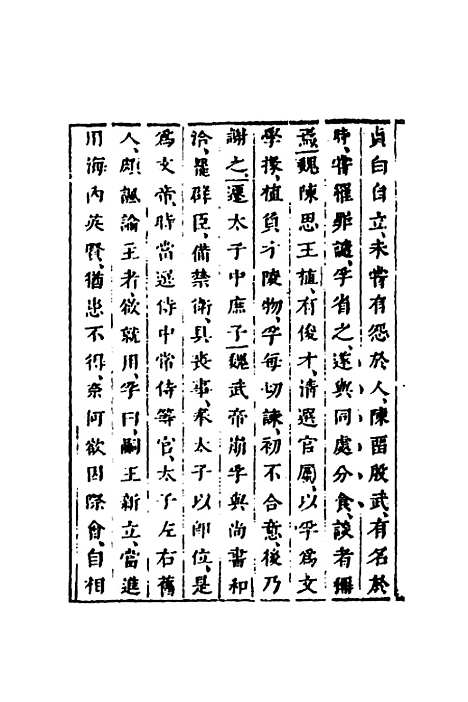 貞白自立、未嘗有怨於人、陳畱殷武、有名於
時、嘗罹罪譴、孚省之、遂與同處分食、談者稱
焉、魏陳思王植、有俊才、清選官屬、以孚為文
學掾、植負才陵物、孚每切諫、初不合意、後乃
謝之、遷太子中庶子、魏武帝崩、孚與尚書和
洽、罷群臣、備禁衛、具喪事、奉太子以卽位、是
為文帝、時當選侍中常侍等官、太子左右舊
人、頗諷諭主者、欲就用、孚曰、嗣王新立、當進
用海內英賢、猶患不得、柰何欲因際會、自相